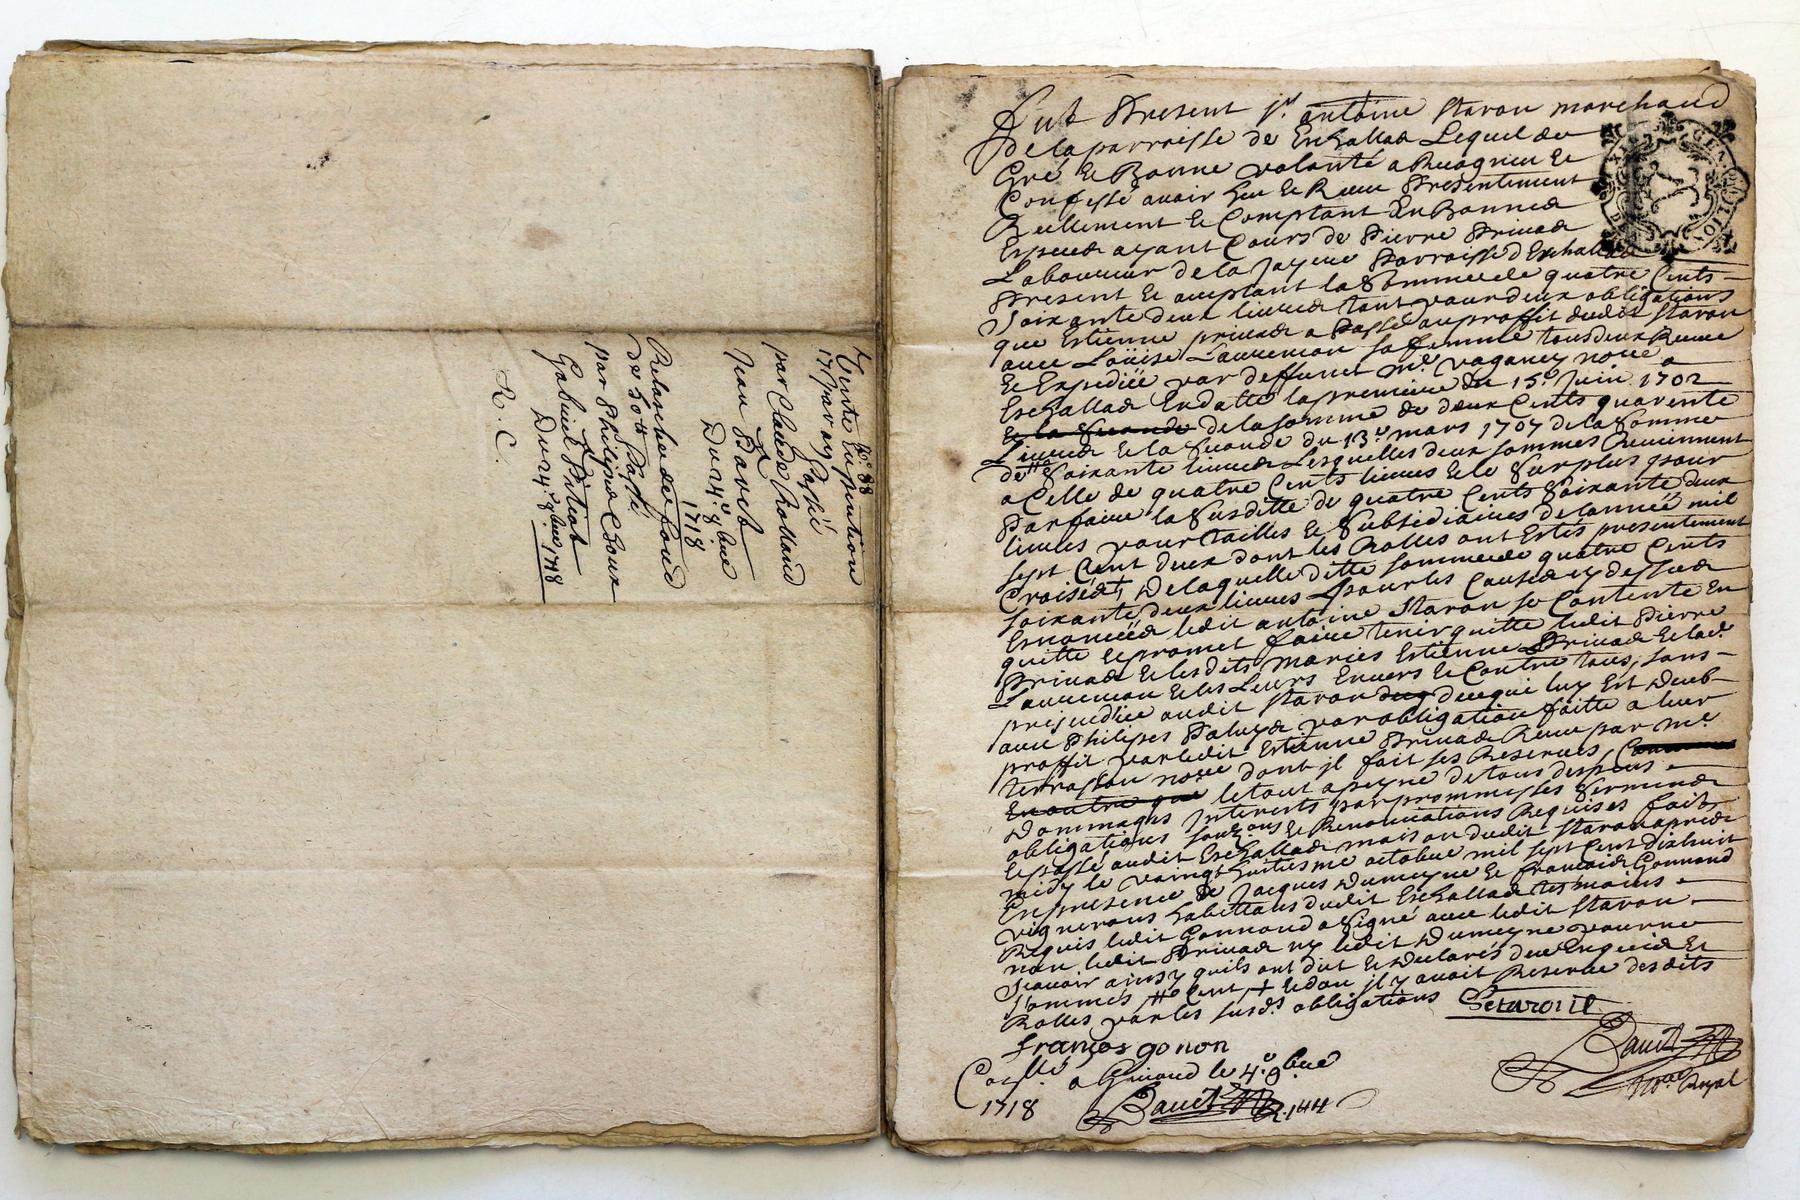 N.° 88
Vente En
1717 par
passé
par Claude Rolland
Jean Bavet
Du 24.e 8bre
1718
Relasche de fond
de 50lt passé
par Philipe Choux
Gabriel Pitiot
Du 24.e 8bre 1718
R. C.
Fut Present Sr. antoine Staron marchand
de la parroisse de Eschallas Lequel de
Gré Et Bonne volonté a Recogneu Et
Confessé avoir heu Et Receu Presentement
Reellement Et Comptant En Bonnes
Especes ayant Cours de Pierre Privas
Laboureur de la Parroisse d'Eschallas
Present Et acceptant la Somme de quatre Cents
Soixante deux livres tant pour deux obligations
que Estienne privas a Passé au proffit dudit Staron
avec Loüise Laurenson sa femme tous deux Receue
Et Expediée par deffunct Me. Vaganey nore. a
Eschallas En datte la premiere du 15.e Juin 1702
Et la Seconde de la somme de deux Cents quarente
Livres Et la Seconde du 13.e mars 1707 de la Somme
de Soixante livres Lesquelles deux sommes Reviennent
a Celle de quatre Cents livres Et le Surplus pour
Parfaire la Susditte de quatre Cents Soixante deux
livres pour tailles Et Subsidiaires de lannée mil
sept Cent deux dont les Rolles ont Estés presentement
Croisés + De laquelle ditte somme de quatre Cents
soixante deux livres pour les Causes cy dessus
Enoncées ledit antoine Staron se Contente En
quitte Et promet faire tenir quitte ledit Pierre
Privas Et lesdits mariés Estienne Privas Et lad.
Laurenson Et les Leurs Envers Et Contre tous, sans
prejudice audit Staron de ce qui luy Est Deub
avec Philipes par obligation faitte a leur
proffit par ledit Estienne Privas Receu par Me.
terrasson nore dont jl fait ses Reserves
En outre que le tout a peyne de tous despens
Dommages Interests par prommesses Serments
obligations soubz.ons Et Renonciations Requises fait
Et passé audit Eschallas maison dudit Staron apres
midy le vaingt huitiesme octobre mil sept Cent dixhuit
En presence de Jacques Dumeyne Et francois Gonnond
vignerons habittans dudit Eschallas tesmoins
Requis ledit Gonnond a Signé avec ledit Staron
non ledit Privas ny ledit Dumeyne pour ne
Scavoir ainsy quils ont dit Et Declarés de ce Enquis Et
Sommés + Et dou jl y avoit Reserve desdits
Rolles par les susd. obligations Setaront
françois gonon
Bavet
Nore Royal
Conllé a Givord le 4.e 9bre
1718 Bavet R. 144